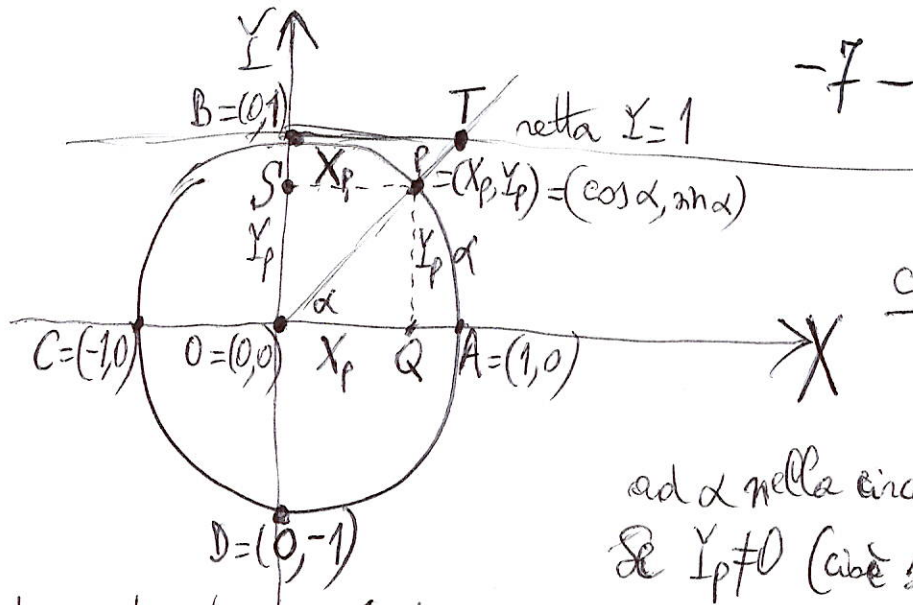 -7-
Y
B=(0,1)
T
retta Y=1
X_P
P=(X_P,Y_P)=(cos α, sin α)
S
Y_P
Y_P
α
α
C=(-1,0)
O=(0,0)
X_P
Q
A=(1,0)
X
ad α nella circ
D=(0,-1)
Se Y_P≠0 (cioè s